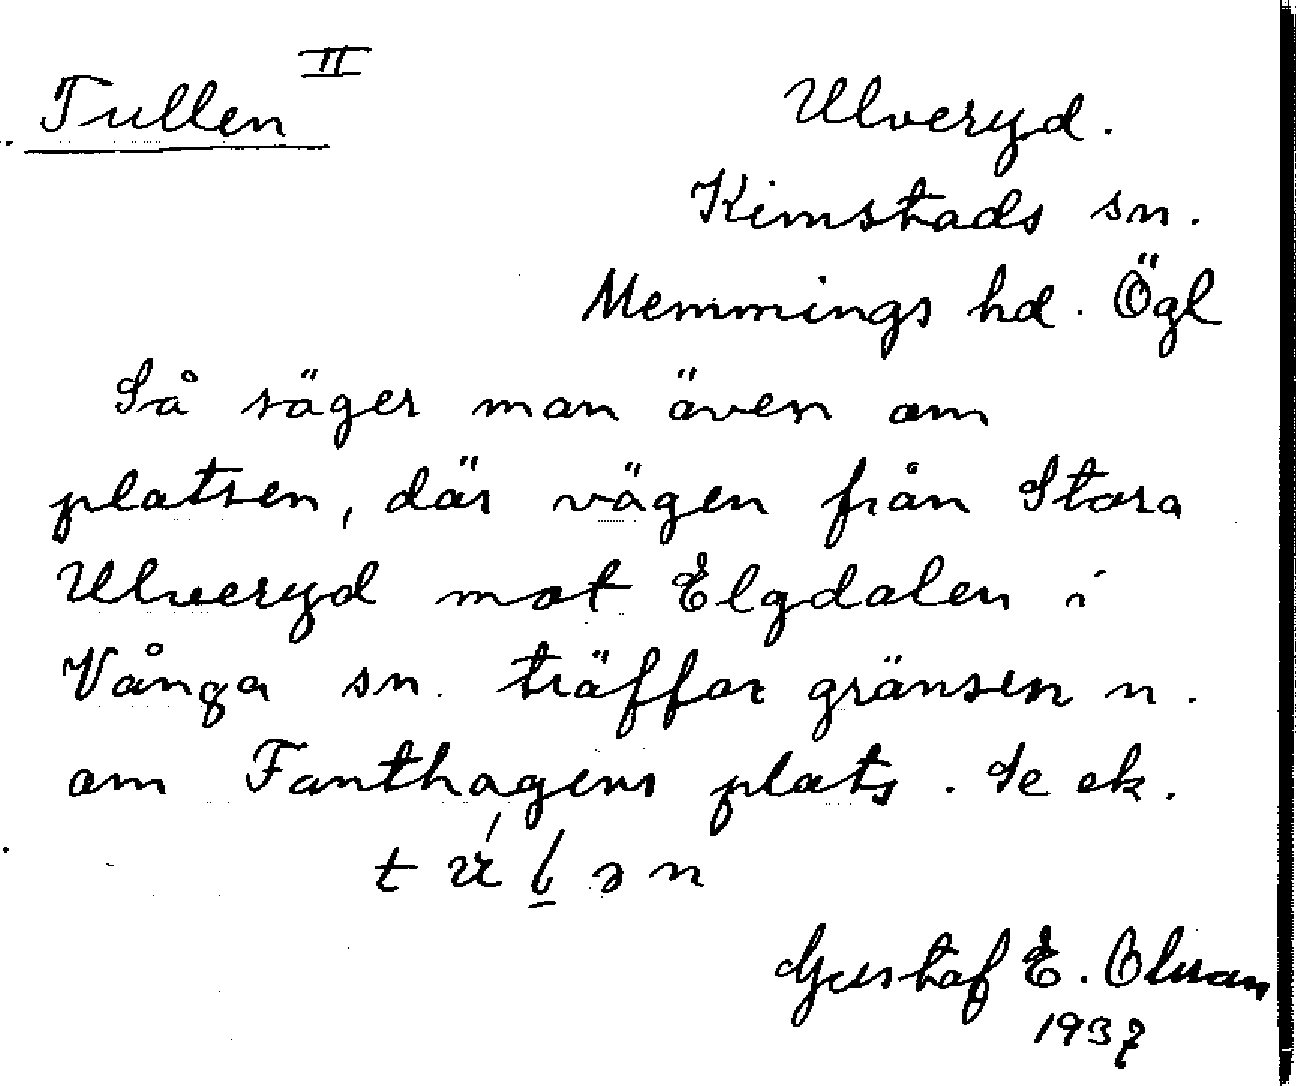 Tullen II
Ulveryd.
Kimstads sn.
Memmings hd. Ögl
Så säger man även om
platsen, där vägen från Stora
Ulveryd mot Elgdalen i
Vånga sn. träffar gränsen n.
om Fanthagens plats. Se ek.
Gustaf E. Olson
1937